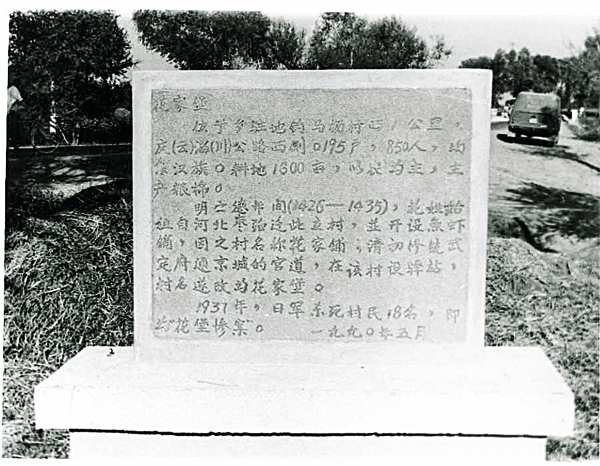 花家堡
位于乡驻地钓马杨村西1公里，
庆(云)淄(川)公路西侧。195户，850人，均
系汉族。耕地1600亩，以农为主，主
产粮棉。
明 德年间(1426—1435)，花姓始
祖自河北枣强迁此立村，並开设
铺，因之村名称花家铺；清初修 武
定府通京城的官道，在该村设驿站，
村名遂改为花家堡。
1937年，日军杀死村民18名，即
为"花堡惨案。 一九九〇年五月